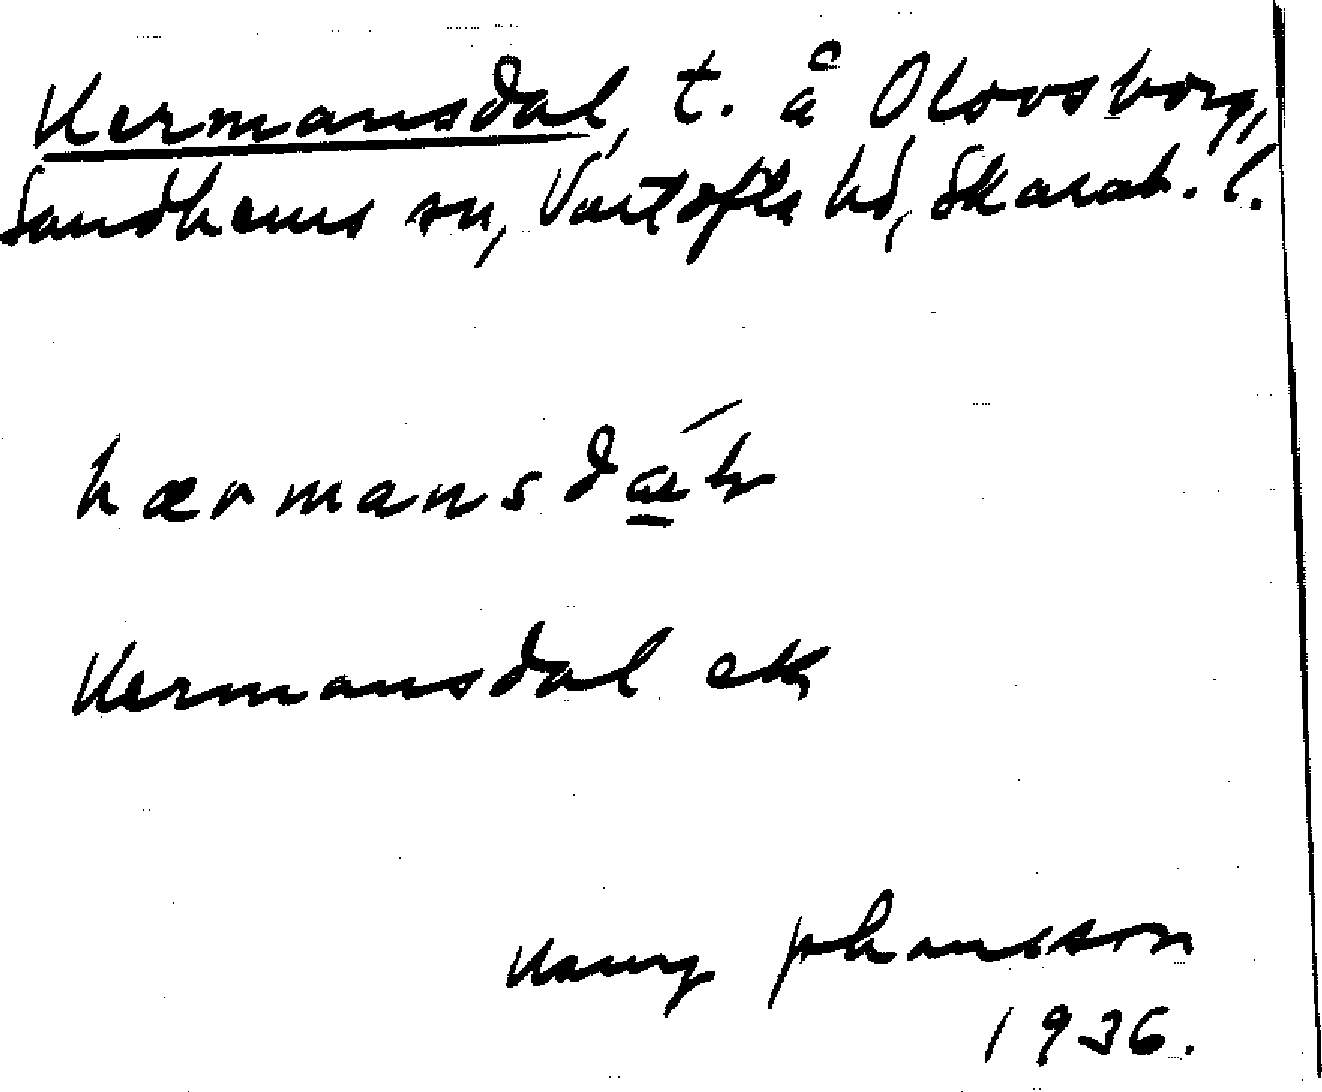 Hermansdal, t. å Olovsborg,
Sandhems sn, Vartofta hd, Skarab. l.
hærmansdáɫ
Hermansdal ek
Harry Johansson
1936.